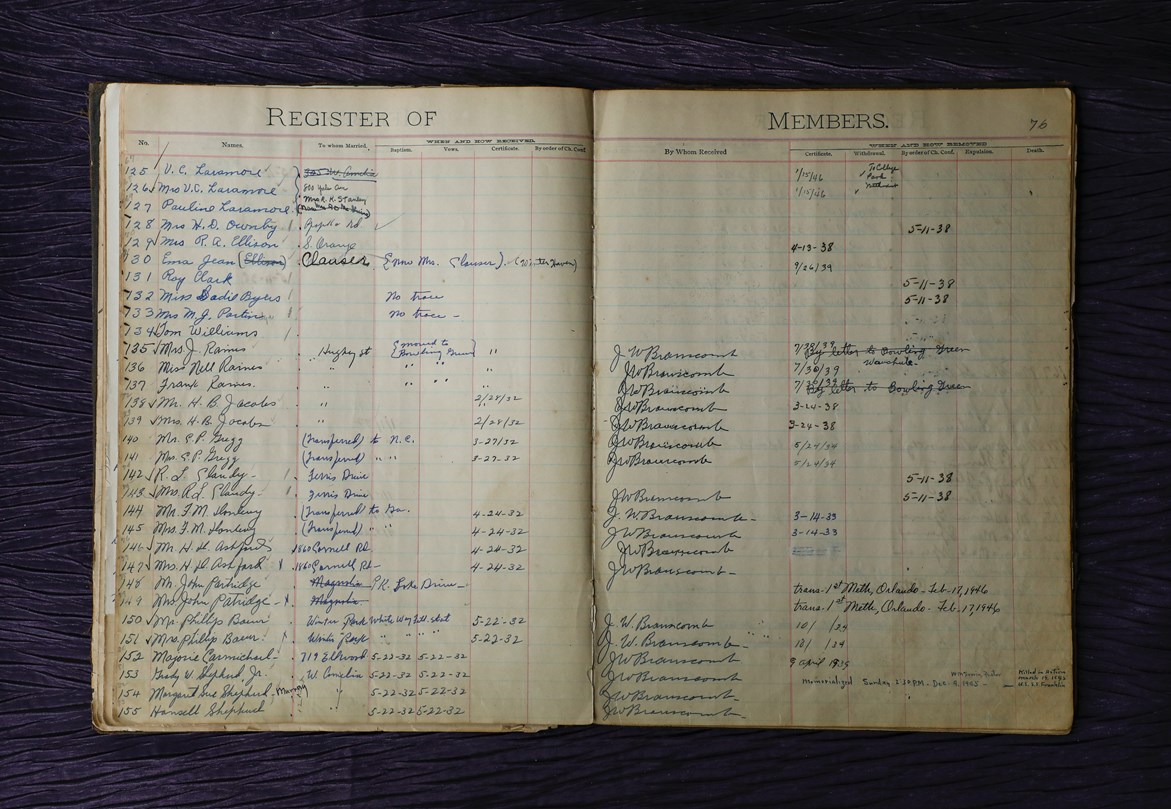 REGISTER OF MEMBERS. 76
No. Names. To whom Married. WHEN AND HOW RECEIVED. Baptism. Vows. Certificate. By order of Ch. Conf. By Whom Received WHEN AND HOW REMOVED Certificate. Withdrawal. By order of Ch. Conf. Expulsion. Death.
125 V. C. Laramore 305 W. Amelia 1/15/46 To College Park
126 Mrs V.C. Laramore 1/15/46
127 Pauline Laramore Mrs R. K. Stanley
128 Mrs H. D. Ownby Rd 5-11-38
129 Mrs R. A. Ellison S. Orange 4-13-38
130 Ema Jean (Ellison) Clauser (Now Mrs. Clauser) (Winter Haven) 9/26/39
131 Roy Clark 5-11-38
132 Miss Sadie Byers No trace 5-11-38
133 Mrs M. J. Partin No trace -
134 Tom Williams
135 Mrs. J. Raines Hughey st (moved to Bowling Green) " J W Branscomb By letter to Bowling Green
136 Miss Nell Raines " " " JW Branscomb 7/30/39 Wauchula
137 Frank Raines. " " " " JW Branscomb By letter to Bowling Green
138 Mr. H. B. Jacobs " 2/28/32 JW Branscomb 3-24-38
139 Mrs. H. B. Jacobs " 2/28/32 JW Branscomb 3-24-38
140 Mr. E. P. Gregg (Transferred) to N.C. 3-27/32 JW Branscomb 5/24/34
141 Mrs. E. P. Gregg (Transferred) " " 3-27-32 JW Branscomb 5/24/34
142 R. L. Clandy - Ferris Drive 5-11-38
143 Mrs. R. L. Clandy - Ferris Drive JW Branscomb 5-11-38
144 Mr. F. M. (Transferred) to Ga. 4-24-32 J. W. Branscomb - 3-14-33
145 Mrs. F. M. (Transferred) " " 4-24-32 JW Branscomb 3-14-33
146 Mr. H. H. Ashford 1860 Cornell Rd 4-24-32 JW Branscomb
147 Mrs. H. H. Ashford 1860 Cornell Rd - 4-24-32 JW Branscomb -
148 Mr. John Patridge Magnolia Lake Drive - trans. 1st Meth, Orlando - Feb-17, 1946
149 Mrs. John Patridge - Magnolia trans. 1st Meth, Orlando - Feb-17, 1946
150 Mr. Phillip Bauer Winter Park 5-22-32 J. W. Branscomb 10/ /34
151 Mrs. Phillip Bauer Winter Park " " " 5-22-32 J. W. Branscomb - " " " 10/ /34
152 Majorie Carmichael - 719 Ellwood 5-22-32 5-22-32 JW Branscomb 9 April 1935
153 Shepherd Jr. W. Amelia 5-22-32 5-22-32 JW Branscomb Memorialized Sunday 2:30 P.M. - Dec. 9, 1945 Killed in Action March 19, 1945 U.S.S. Franklin
154 Margaret Sue Shepherd, Murray " 5-22-32 5-22-32 JW Branscomb
155 Hansell Shepherd 5-22-32 5-22-32 JW Branscomb